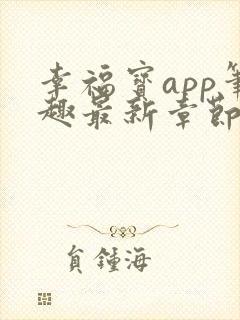 幸福宝app笔
趣最新章节
贠锺海